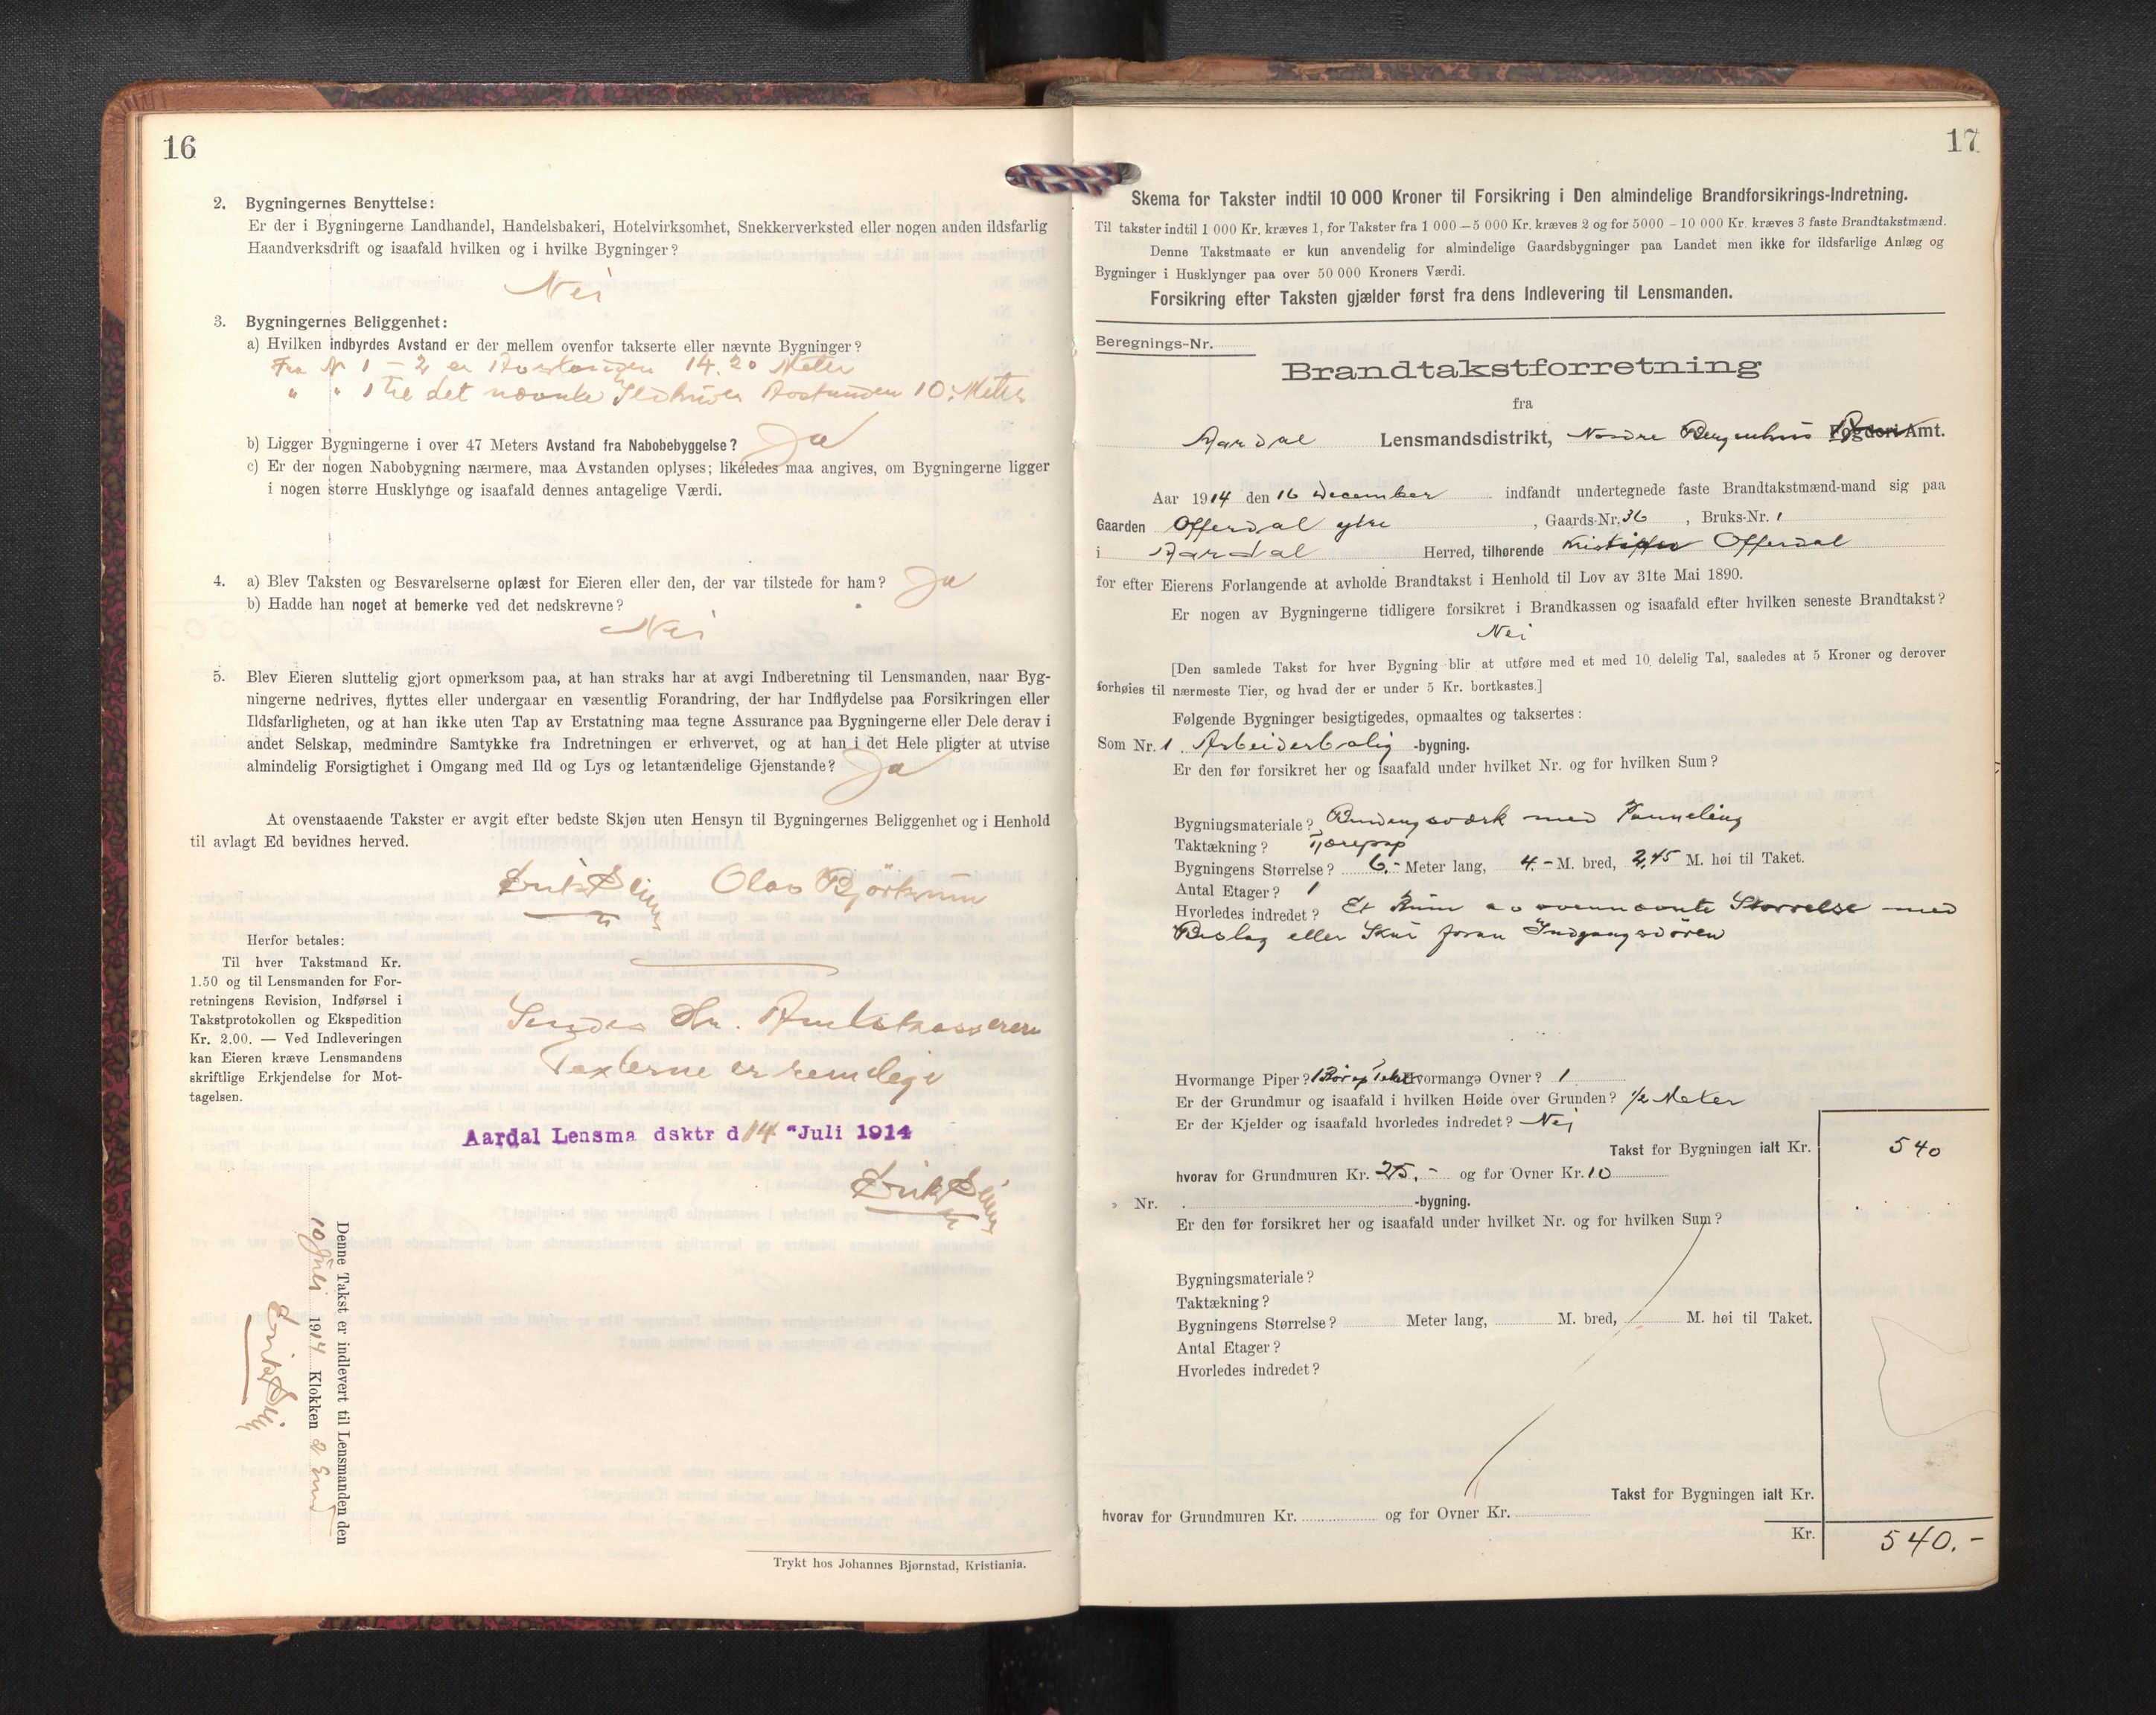 16
2. Bygningernes Benyttelse:
Er der i Bygningerne Landhandel, Handelsbakeri, Hotelvirksomhet, Snekkerverksted eller nogen anden ildsfarlig
Haandverksdrift og isaafald hvilken og i hvilke Bygninger?
Nei
3. Bygningernes Beliggenhet:
a) Hvilken indbyrdes Avstand er der mellem ovenfor takserte eller nævnte Bygninger?
Fra N 1 – 2 er Avstanden 14.20 Meter
" " 1 til det nævnte Ildhus er Avstanden 10. Meter
b) Ligger Bygningerne i over 47 Meters Avstand fra Nabobebyggelse? Ja
c) Er der nogen Nabobygning nærmere, maa Avstanden oplyses; likeledes maa angives, om Bygningerne ligger
i nogen større Husklynge og isaafald dennes antagelige Værdi.
4. a) Blev Taksten og Besvarelserne oplæst for Eieren eller den, der var tilstede for ham? Ja
b) Hadde han noget at bemerke ved det nedskrevne?
Nei
5. Blev Eieren sluttelig gjort opmerksom paa, at han straks har at avgi Indberetning til Lensmanden, naar Byg-
ningerne nedrives, flyttes eller undergaar en væsentlig Forandring, der har Indflydelse paa Forsikringen eller
Ildsfarligheten, og at han ikke uten Tap av Erstatning maa tegne Assurance paa Bygningerne eller Dele derav i
andet Selskap, medmindre Samtykke fra Indretningen er erhvervet, og at han i det Hele pligter at utvise
almindelig Forsigtighet i Omgang med Ild og Lys og letantændelige Gjenstande? Ja
At ovenstaaende Takster er avgit efter bedste Skjøn uten Hensyn til Bygningernes Beliggenhet og i Henhold
til avlagt Ed bevidnes herved.
Olav
Herfor betales:
Til hver Takstmand Kr.
1.50 og til Lensmanden for For-
retningens Revision, Indførsel i
Takstprotokollen og Ekspedition
Kr. 2.00. — Ved Indleveringen
kan Eieren kræve Lensmandens
skriftlige Erkjendelse for Mot-
tagelsen.
Sendes Hr. Amtskasserern
Taxterne er rimelige
Aardal Lensma dsktr d 14 "Juli 1914
Denne Takst er indlevert til Lensmanden den
10 Juli 1914 Klokken 2 Emd
Trykt hos Johannes Bjørnstad, Kristiania.
17
Skema for Takster indtil 10 000 Kroner til Forsikring i Den almindelige Brandforsikrings-Indretning.
Til takster indtil 1 000 Kr. kræves 1, for Takster fra 1 000 — 5 000 Kr. kræves 2 og for 5000 – 10 000 Kr. kræves 3 faste Brandtakstmænd.
Denne Takstmaate er kun anvendelig for almindelige Gaardsbygninger paa Landet men ikke for ildsfarlige Anlæg og
Bygninger i Husklynger paa over 50 000 Kroners Værdi.
Forsikring efter Taksten gjælder først fra dens Indlevering til Lensmanden.
Beregnings-Nr.
Brandtakstforretning
fra
Aardal Lensmandsdistrikt, Nordre Bergenhus Fogderi Amt.
Aar 1914 den 16 December indfandt undertegnede faste Brandtakstmænd-mand sig paa
Gaarden Offerdal ytre, Gaards-Nr. 36, Bruks-Nr. 1
i Aardal Herred, tilhørende Kristoffer Offerdal
for efter Eierens Forlangende at avholde Brandtakst i Henhold til Lov av 31te Mai 1890.
Er nogen av Bygningerne tidligere forsikret i Brandkassen og isaafald efter hvilken seneste Brandtakst?
Nei
[Den samlede Takst for hver Bygning blir at utføre med et med 10 delelig Tal, saaledes at 5 Kroner og derover
forhøies til nærmeste Tier, og hvad der er under 5 Kr. bortkastes.]
Følgende Bygninger besigtigedes, opmaaltes og taksertes:
Som Nr. 1 Arbeiderbolig -bygning.
Er den før forsikret her og isaafald under hvilket Nr. og for hvilken Sum?
Bygningsmateriale? Bindingsværk med Panneling
Taktækning? Tjærepap
Bygningens Størrelse? 6.- Meter lang, 4.- M. bred, 2,45 M. høi til Taket.
Antal Etager? 1
Hvorledes indredet? Et Rum av ovennævnte Størrelse med
Bislag eller Skur foran Indgangsdøren
Hvormange Piper? 1 Hvormange Ovner? 1
Er der Grundmur og isaafald i hvilken Høide over Grunden? 1/2 Meter
Er der Kjelder og isaafald hvorledes indredet? Nei
Takst for Bygningen ialt Kr. 540
hvorav for Grundmuren Kr. 25.- og for Ovner Kr. 10
» Nr. -bygning.
Er den før forsikret her og isaafald under hvilket Nr. og for hvilken Sum?
Bygningsmateriale?
Taktækning?
Bygningens Størrelse? Meter lang, M. bred, M. høi til Taket.
Antal Etager?
Hvorledes indredet?
Takst for Bygningen ialt Kr.
hvorav for Grundmuren Kr. og for Ovner Kr.
Kr. 540.-